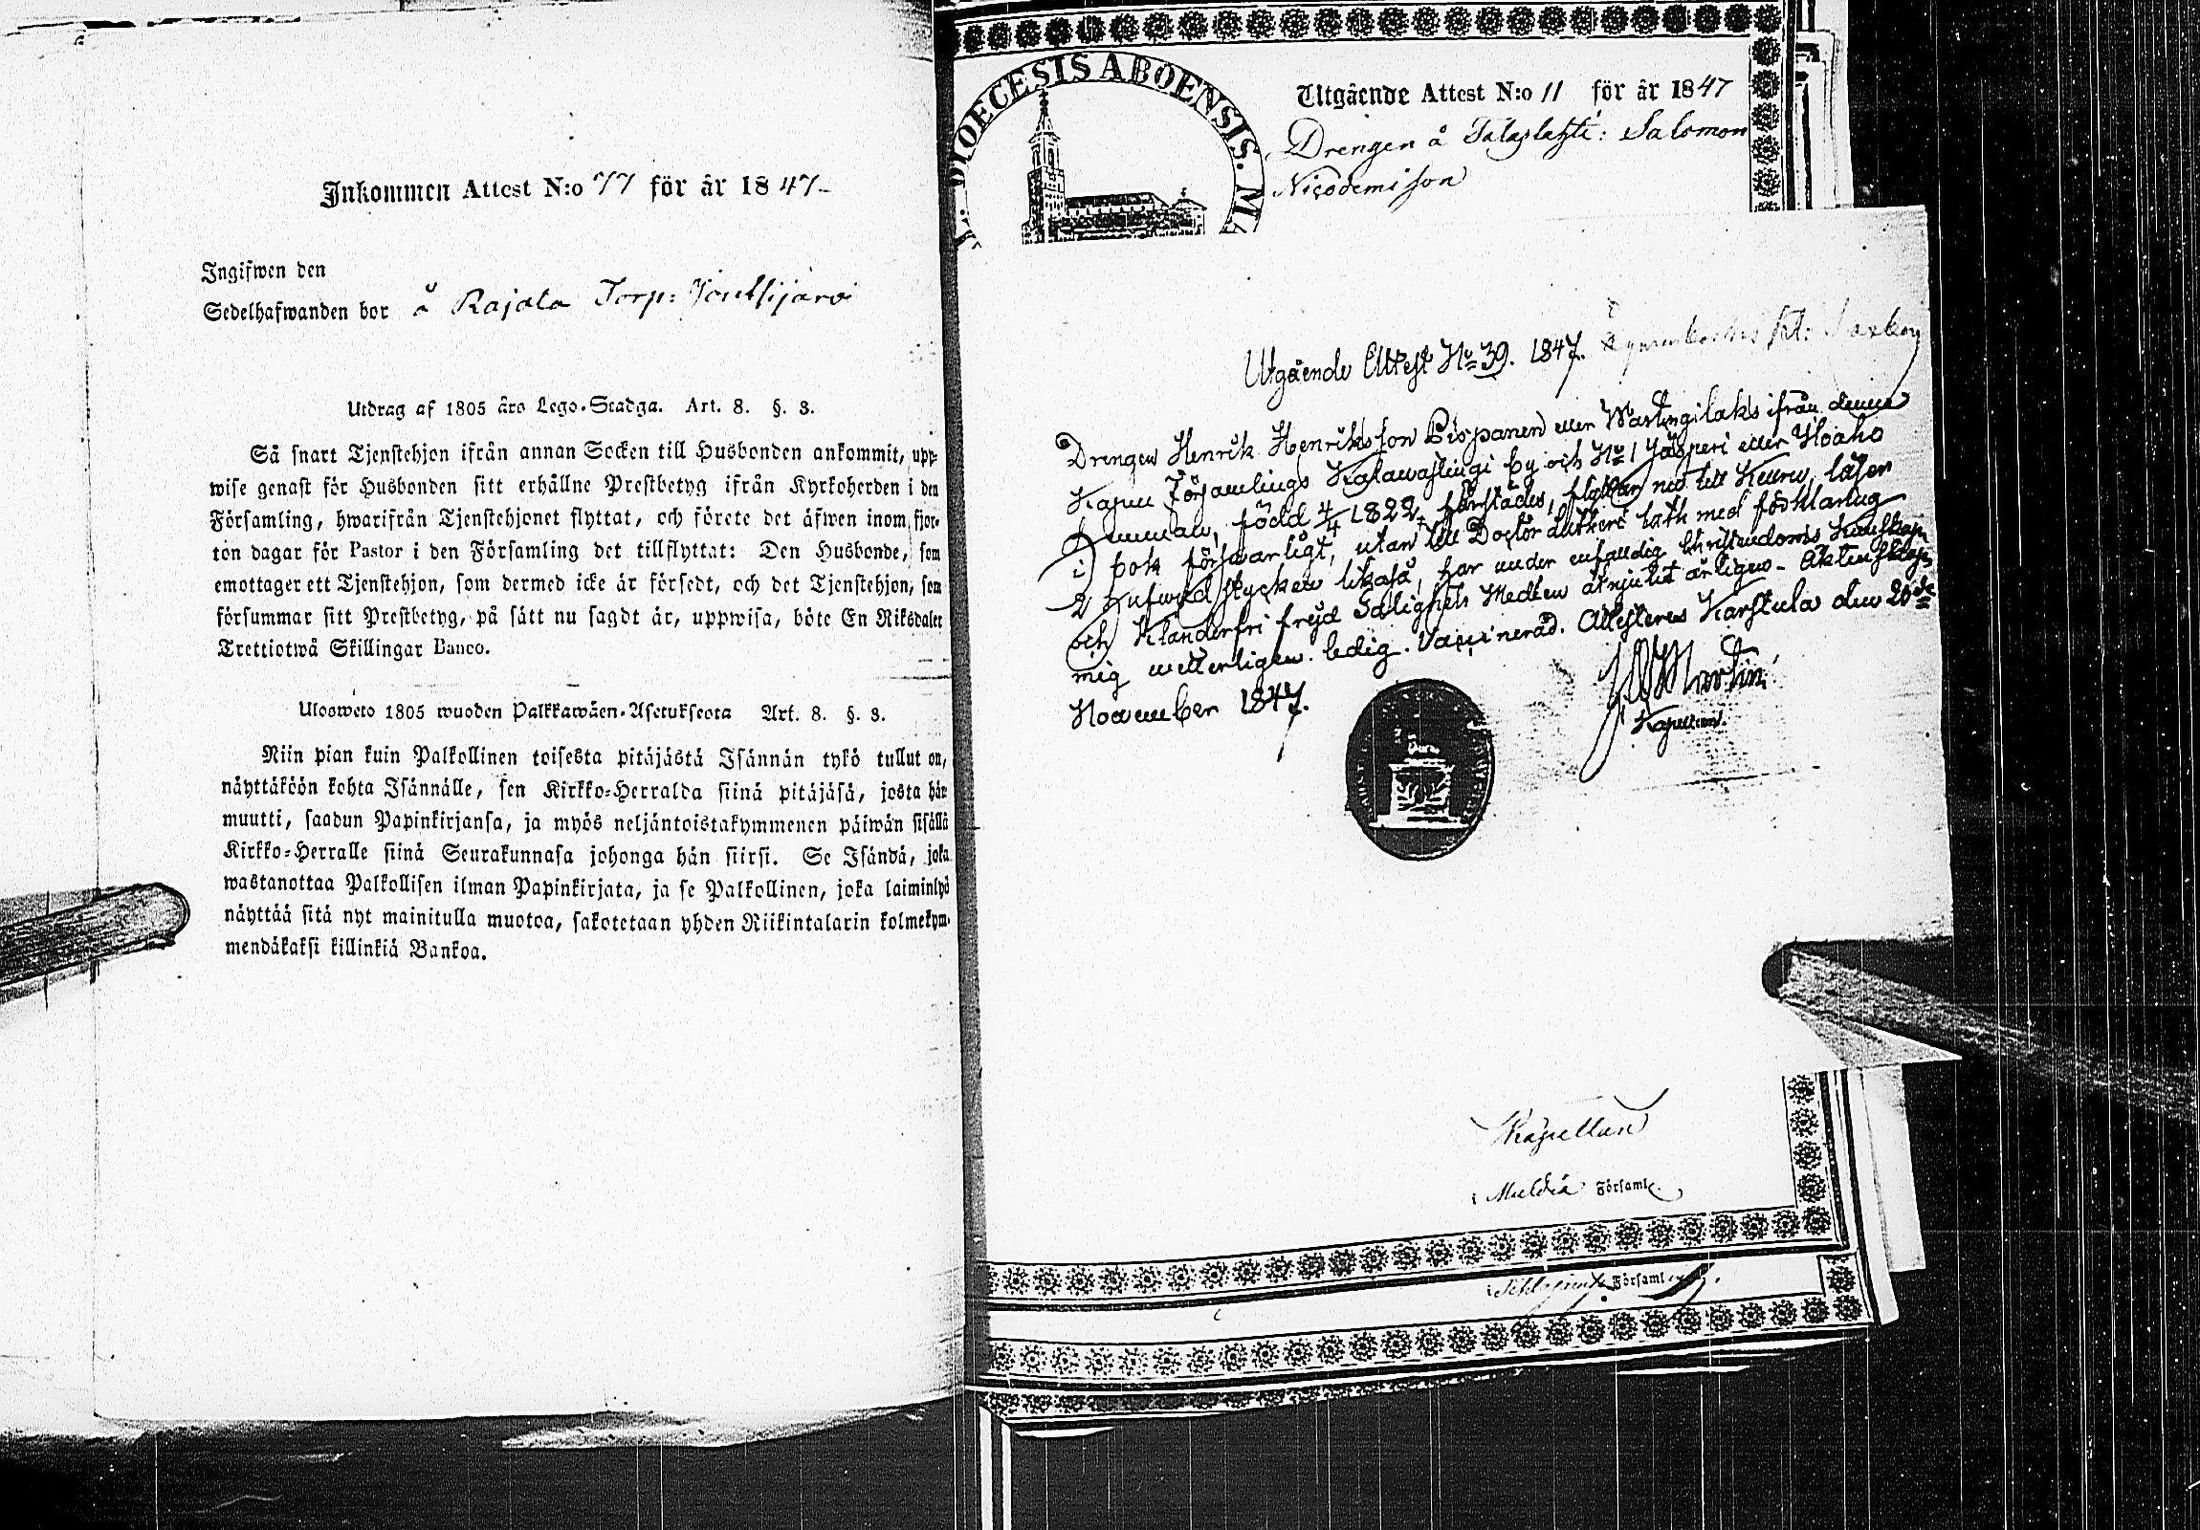 Inkommen Attest N:o 77 för år 1847
Ingifwen den
Sedelhafwanden bor å Rajala Torp:
Utdrag af 1805 års Lego-Stadga. Art. 8. §. 3.
Så snart Tjenstehjon ifrån annan Socken till Husbonden ankommit, upp-
wise genast för Husbonden sitt erhållne Prestbetyg ifrån Kyrkoherden i den
Församling, hwarifrån Tjenstehjonet flyttat, och förete det äfwen inom fjor-
ton dagar för Pastor i den Församling det tillflyttat: Den Husbonde, som
emottager ett Tjenstehjon, som dermed icke är försedt, och det Tjenstehjon, som
försummar sitt Prestbetyg, på sätt nu sagdt är, uppwisa, böte En Riksdaler
Trettiotwå Skillingar Banco.
Ulosweto 1805 wuoden Palkkawäen-Asetuksesta Art. 8. §. 3.
Niin pian kuin Palkollinen toisesta pitäjästä Isännän tykö tullut on,
näyttäköön kohta Isännälle, sen Kirkko-Herralda siinä pitäjäsä, josta hän
muutti, saadun Papinkirjansa, ja myös neljäntoistakymmenen päiwän sisällä
Kirkko-Herralle siinä Seurakunnasa johonga hän siirsi. Se Isändä, joka
wastanottaa Palkollisen ilman Papinkirjata, ja se Palkollinen, joka laiminlyö
näyttää sitä nyt mainitulla muotoa, sakotetaan yhden Riikintalarin kolmekym-
mendäkaksi killinkiä Bankoa.
DIOECESIS ABOENSIS. M
Utgående Attest N:o 11 för år 1847
Drengen å : Salomon
Nicodemisson
Utgående Attest No 39. 1847.
Drengen Henrik Henriksson Piispanen eller ifrån denna
Kapell Församlings by och No 1 eller Hoaho
hemman, född 4/4 1822 härstädes, flyttar nu till Keuru, läser
i bok försvarligt, utan till Doctor Lutheri Cath med förklaring
2 hufwudstycken likaså, har under enfaldig Christendoms Kunskap
och Klanderfri frejd Salighets Medlen åtnjutit årligen. Äktenskap
mig wetterligen ledig. Vaccinerad. Attesteras Karstula den 20de
November 1847.
Martin
Kapellan.
Kapellan
i Multia Församl.
i Församl